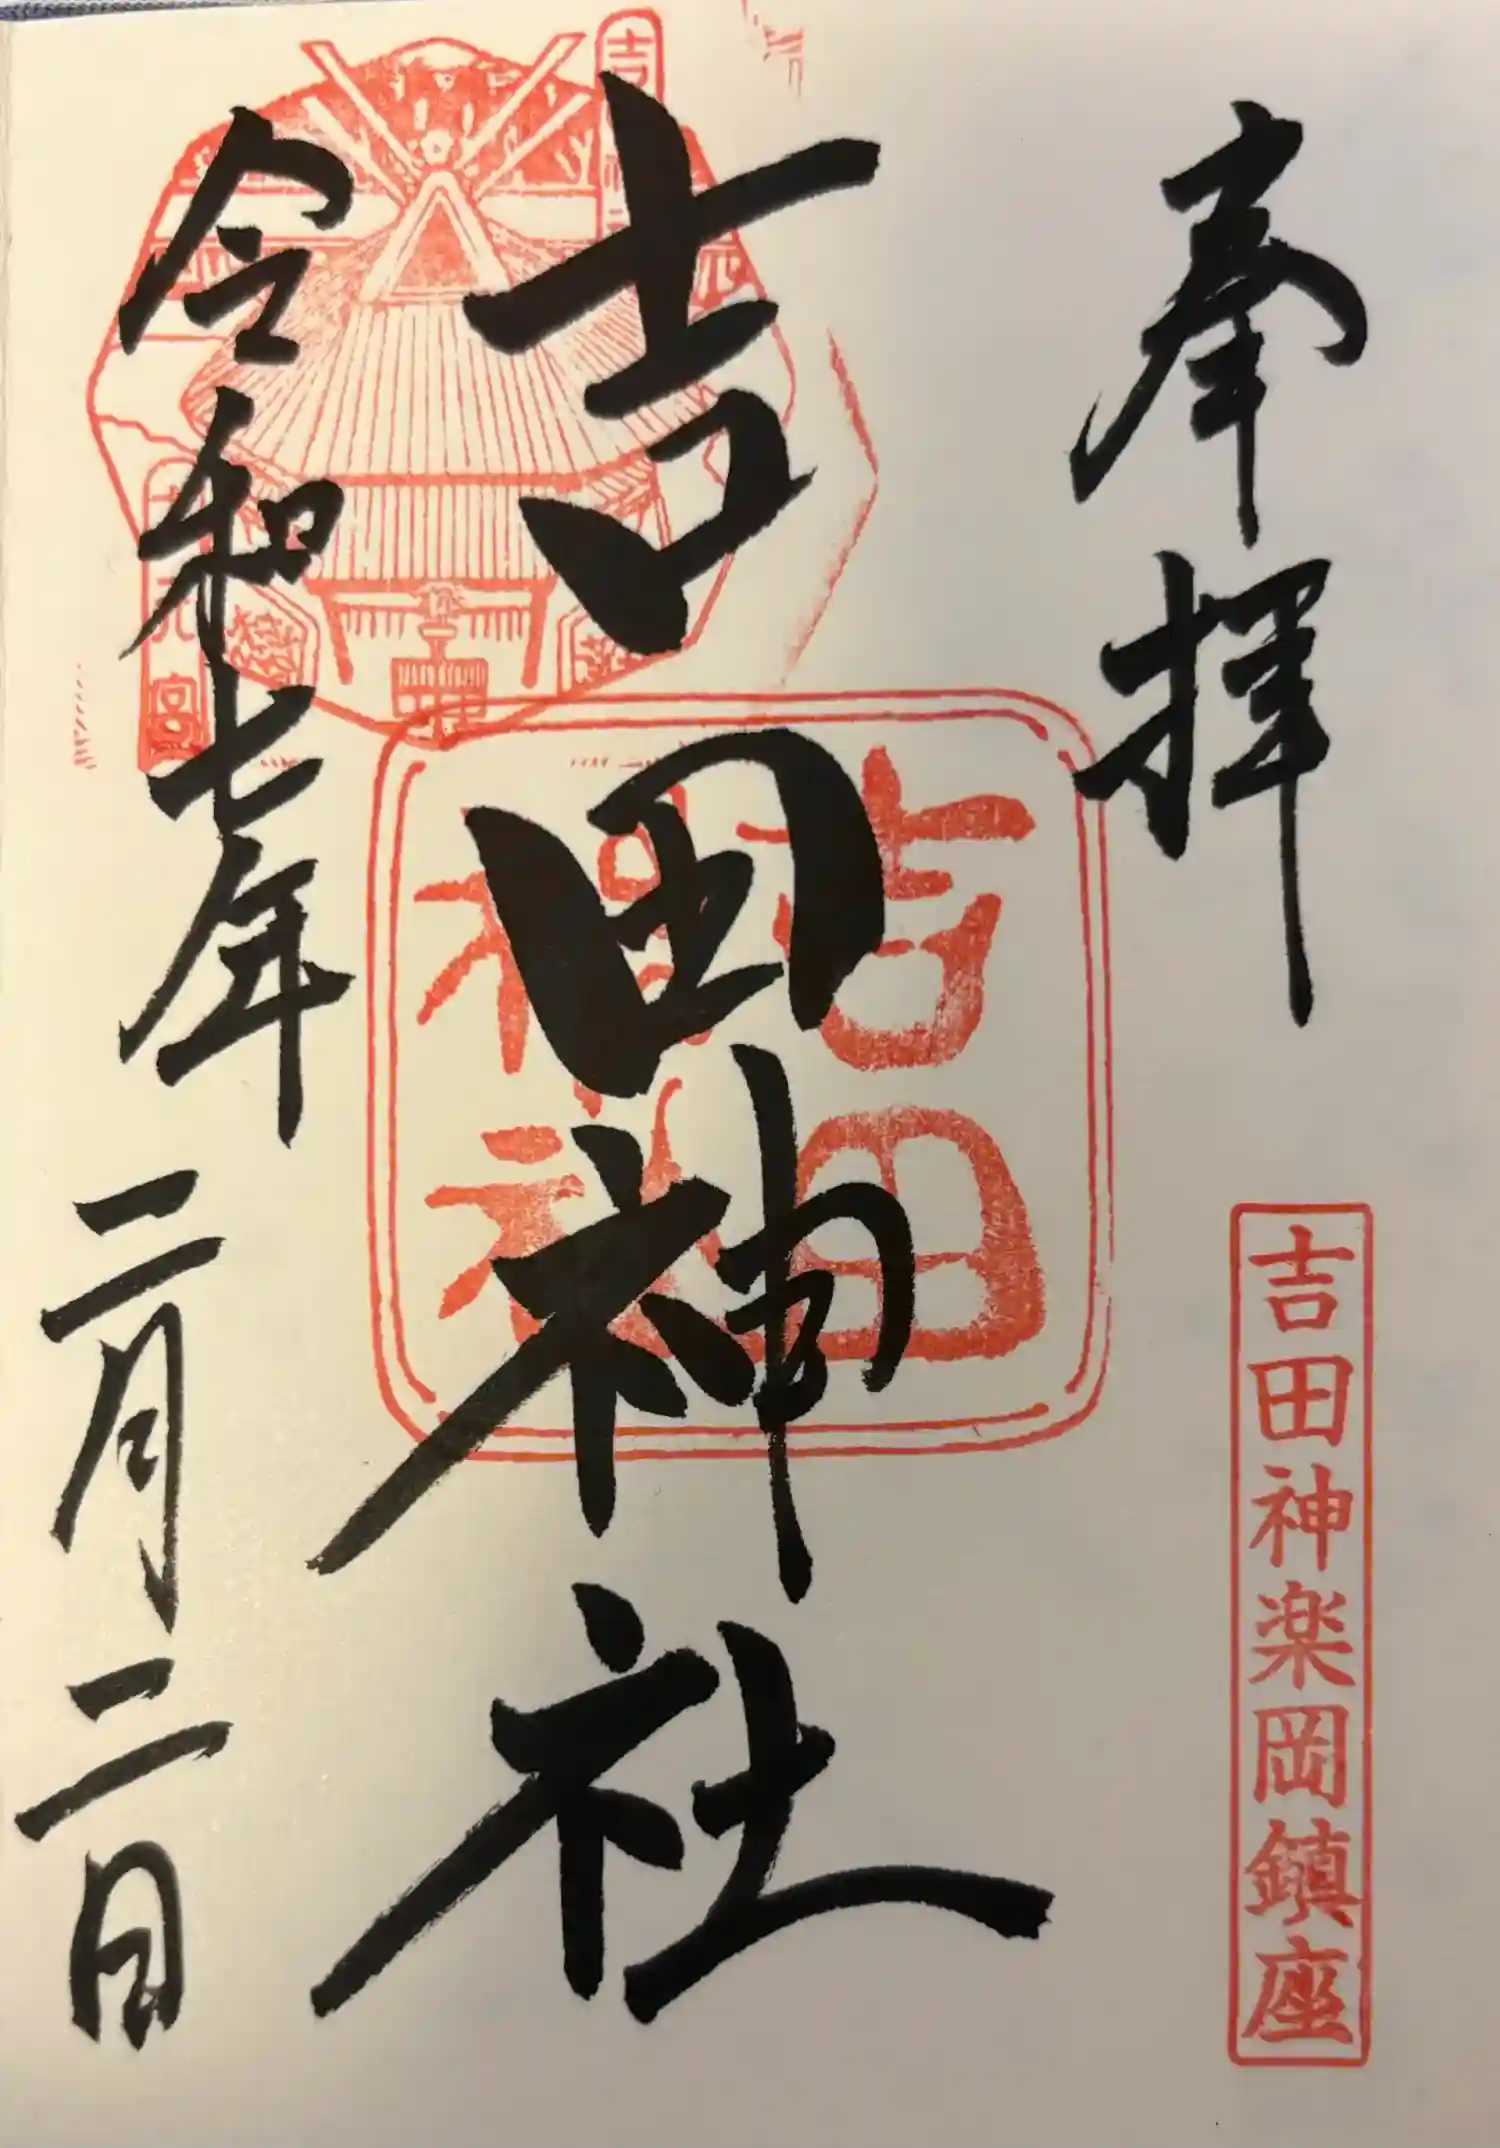 奉拝
吉田神楽岡鎮座
吉田神社
吉田
神社
令和七年二月二日